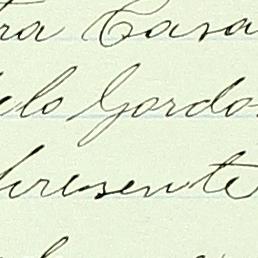 ra Casa
elo Gordo
presente